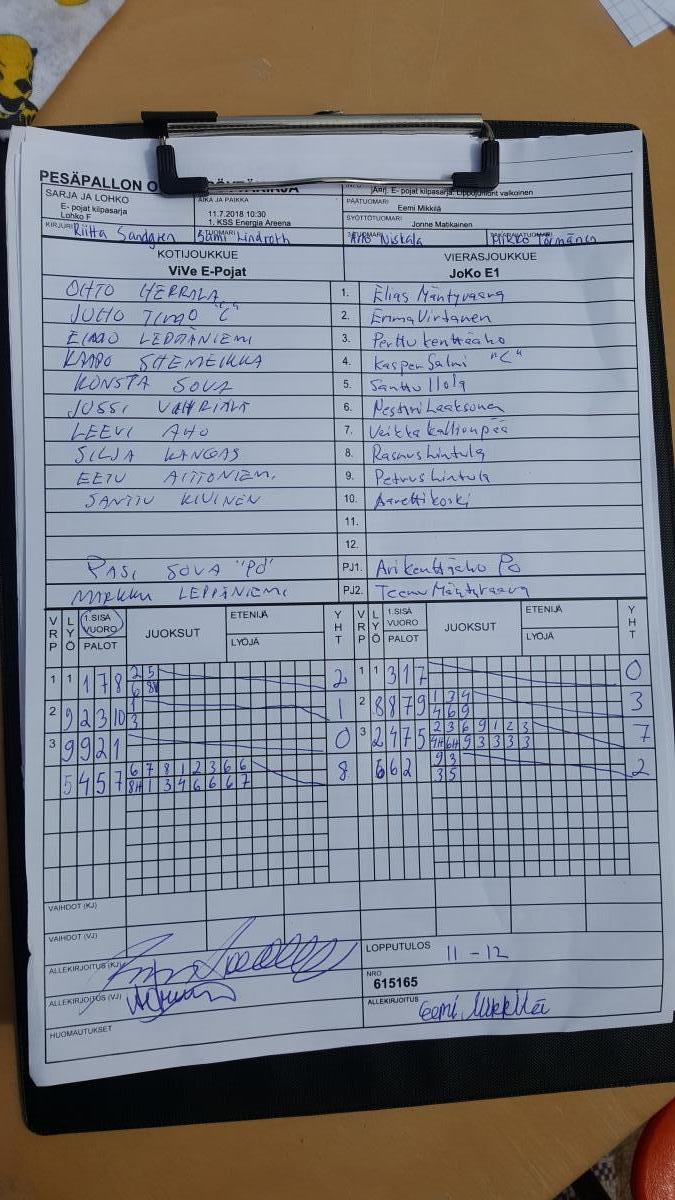 PESÄPALLON O
SARJA JA LOHKO
E- pojat kilpasarja
Lohko F
AIKA JA PAIKKA
11.7.2018 10:30
1. KSS Energia Areena
Anrj. E- pojat kilpasarja. Lippujuhlat valkoinen
PÄÄTUOMARI
Eemi Mikkilä
SYÖTTÖTUOMARI
Jonne Matikainen
KIRJURI Riitta Sandgren
Sami Lindroth
Arto Niskala
Mikko Törmänen
KOTIJOUKKUE
ViVe E-Pojat
VIERASJOUKKUE
JoKo E1
OHTO HERRALA 1. Elias Mäntyvaara
JUHO TIMO "C" 2. Emma Virtanen
EINO LEPPÄNIEMI 3. Perttu Kenttäaho
KAAPO SHEMEIKKA 4. Kasper Salmi "C"
KONSTA SOVA 5. Santtu Ilola
JUSSI 6. Laaksonen
LEEVI AHO 7. Veikka Kallionpää
SILJA KANGAS 8. Rasmus Hintula
EETU AITTONIEMI 9. Petrus Hintula
SANTTU KIVINEN 10. Aaretti Koski
11.
12.
PASI SOVA "PJ" PJ1. Ari Kenttäaho PJ
MARKKU LEPPÄNIEMI PJ2. Teemu Mäntyvaara
VRP LYÖ 1.SISÄ VUORO PALOT JUOKSUT ETENIJÄ LYÖJÄ YHT VRP LYÖ 1.SISÄ VUORO PALOT JUOKSUT ETENIJÄ LYÖJÄ YHT
1 1 1 7 8 2 5 2 1 1 3 1 7 0
6 8H
2 9 2 3 10 1 1 2 8 8 7 9 1 3 4 3
3 4 6 9
3 9 9 2 1 0 3 2 4 7 5 2 3 6 9 1 2 3 7
4H 6H 9 3 3 3 3
5 4 5 7 6 7 8 1 2 3 6 6 8 6 6 2 9 3 2
8H 1 3 4 6 6 6 7 3 5
VAIHDOT (KJ)
VAIHDOT (VJ)
ALLEKIRJOITUS (KJ)
LOPPUTULOS 11 - 12
ALLEKIRJOITUS (VJ)
NRO
615165
ALLEKIRJOITUS Eemi Mikkilä
HUOMAUTUKSET